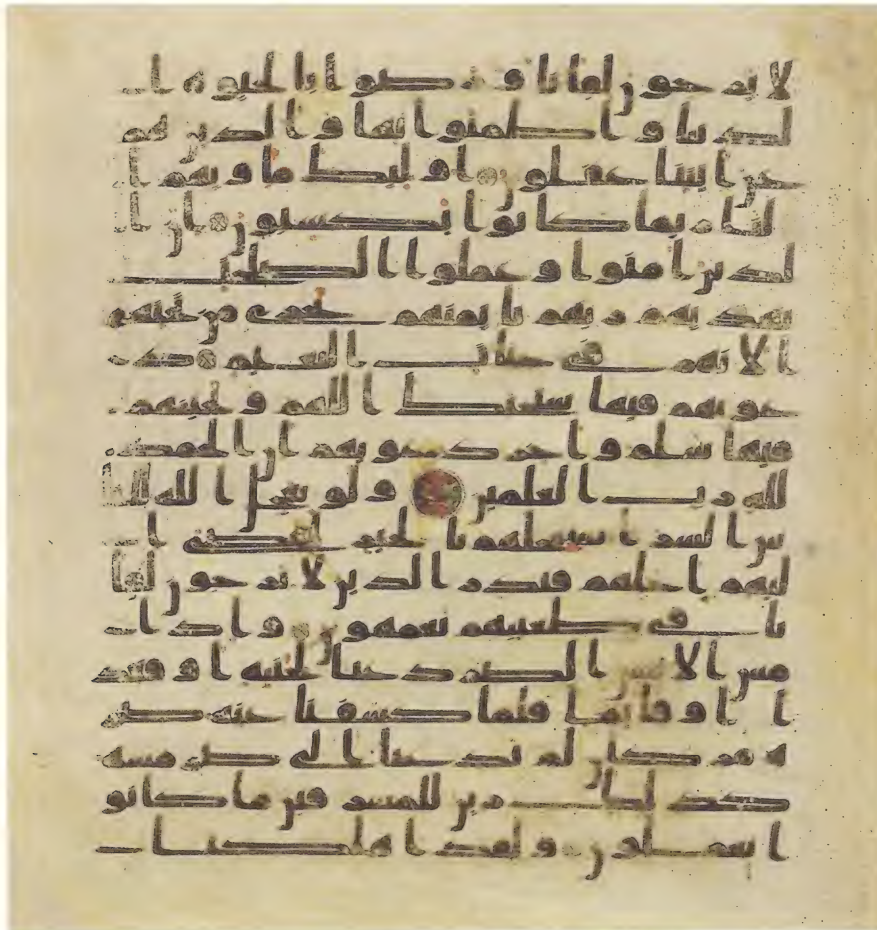 لا يرجون لقانا ورضوا بالحيوه ا
لدنيا واطمنوا بها والذين هم
عن ايتنا غفلون اوليك ماويهم ا
لنار بما كانوا يكسبون ان ا
لذين امنوا وعملوا الصلحت
يهديهم ربهم بايمنهم تجري من تحتهم
الانهر في جنت النعيم د
عويهم فيها سبحنك اللهم وتحيتهم
فيها سلم واخر دعويهم ان الحمد
لله رب العلمين ولو يعجل الله للنا
س الشر استعجلهم بالخير لقضي ا
ليهم اجلهم فنذر الذين لا يرجون لقا
نا في طغينهم يعمهون واذا
مس الانسن الضر دعنا لجنبه او قعد
ا او قايما فلما كشفنا عنه ضر
ه مر كان لم يدعنا الى ضر مسه
كذلك زين للمسرفين ما كانو
ا يعملون ولقد اهلكنا ا